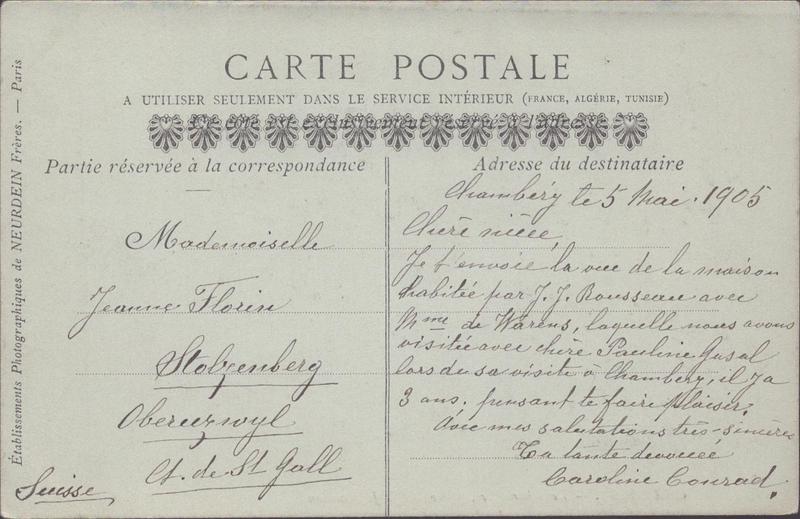 CARTE POSTALE
A UTILISER SEULEMENT DANS LE SERVICE INTÉRIEUR (FRANCE, ALGÉRIE, TUNISIE)
Ce côté est exclusivement réservé à l'adresse
Partie réservée à la correspondance
Mademoiselle
Jeanne Florin
Stolzenberg
Oberuzwyl
Ct. de St Gall
Suisse
Adresse du destinataire
Chambéry le 5 Mai. 1905
Chère nièce,
Je t'envoie la vue de la maison
habitée par J. J. Rousseau avec
Mme de Warens, laquelle nous avons
visitée avec chère Pauline
lors de sa visite à Chambéry, il y a
3 ans. pensant te faire plaisir.
Avec mes salutations très-sincères
Ta tante dévouée
Caroline Conrad.
Établissements Photographiques de NEURDEIN Frères. — Paris